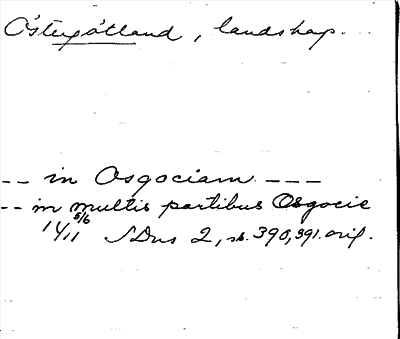 Östergötland, landskap.
-- in Osgociam ---
-- in multis partibus Osgocie
5/6
1411 SDns 2, s. 390, 391. orig.